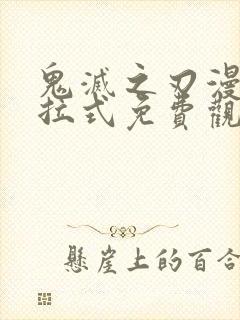 鬼滅之刃漫
拉式免費觀
懸崖上的百合